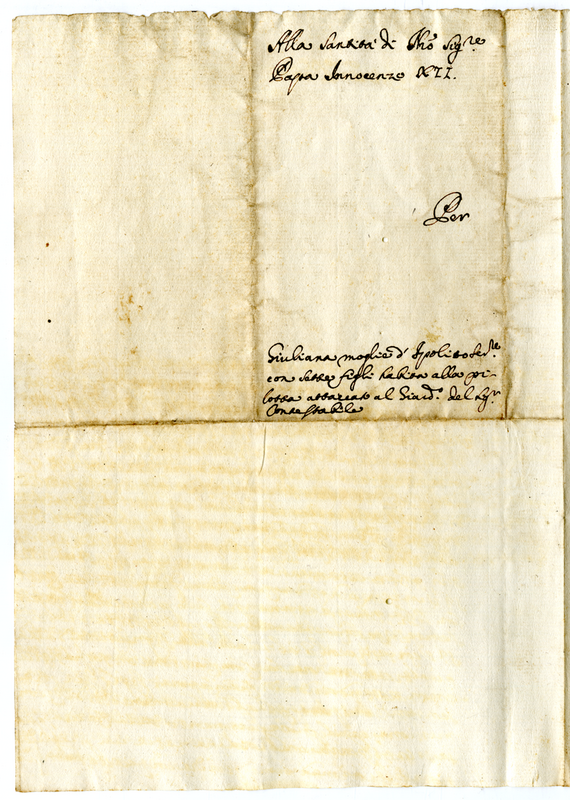 Alla Santità di Nro Sigre
Papa Innocenzo XII.
Per
Giuliana moglie d' Ipolito
con sette figli habita alla pi-
lotta attacato al Giard.o del Sigr
Contestabile